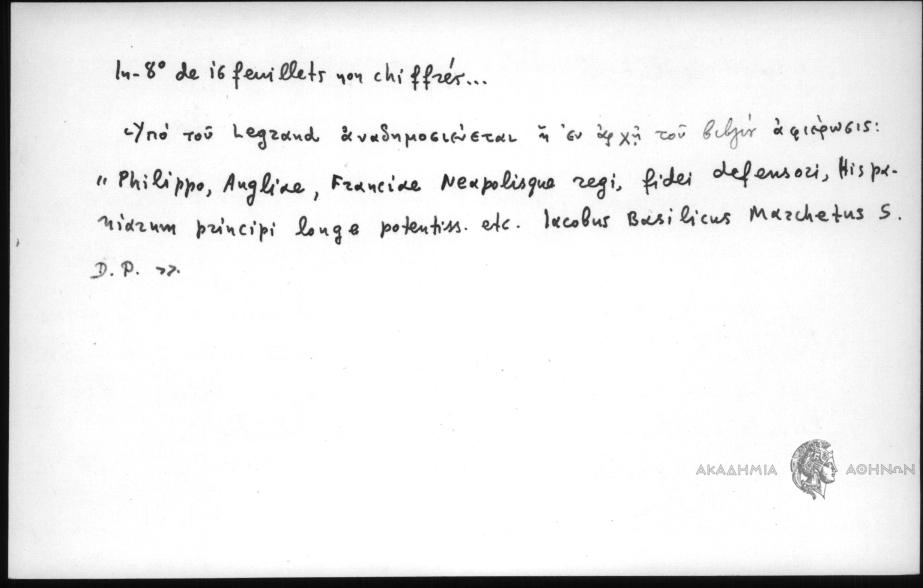 In-8° de 16 feuillets non chiffrés...
Ὑπὸ τοῦ Legrand ἀναδημοσιεύεται ἡ ἐν ἀρχῇ τοῦ βιβλίου ἀφιέρωσις:
" Philippo, Angliae, Franciae Neapolisque regi, fidei defensori, Hispa-
niarum principi longe potentiss. etc. Iacobus Basilicus Marchetus S.
D. P. >>.
ΑΚΑΔΗΜΙΑ ΑΘΗΝΩΝ